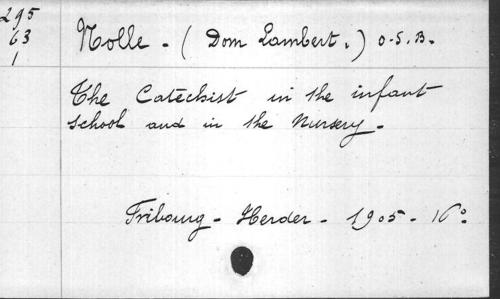 295
63
1
Nolle. - (Dom Lambert.) O.S.B.
The Catechist in the infant
school and in the Nursery -
Fribourg - Herder - 1905 - 16°